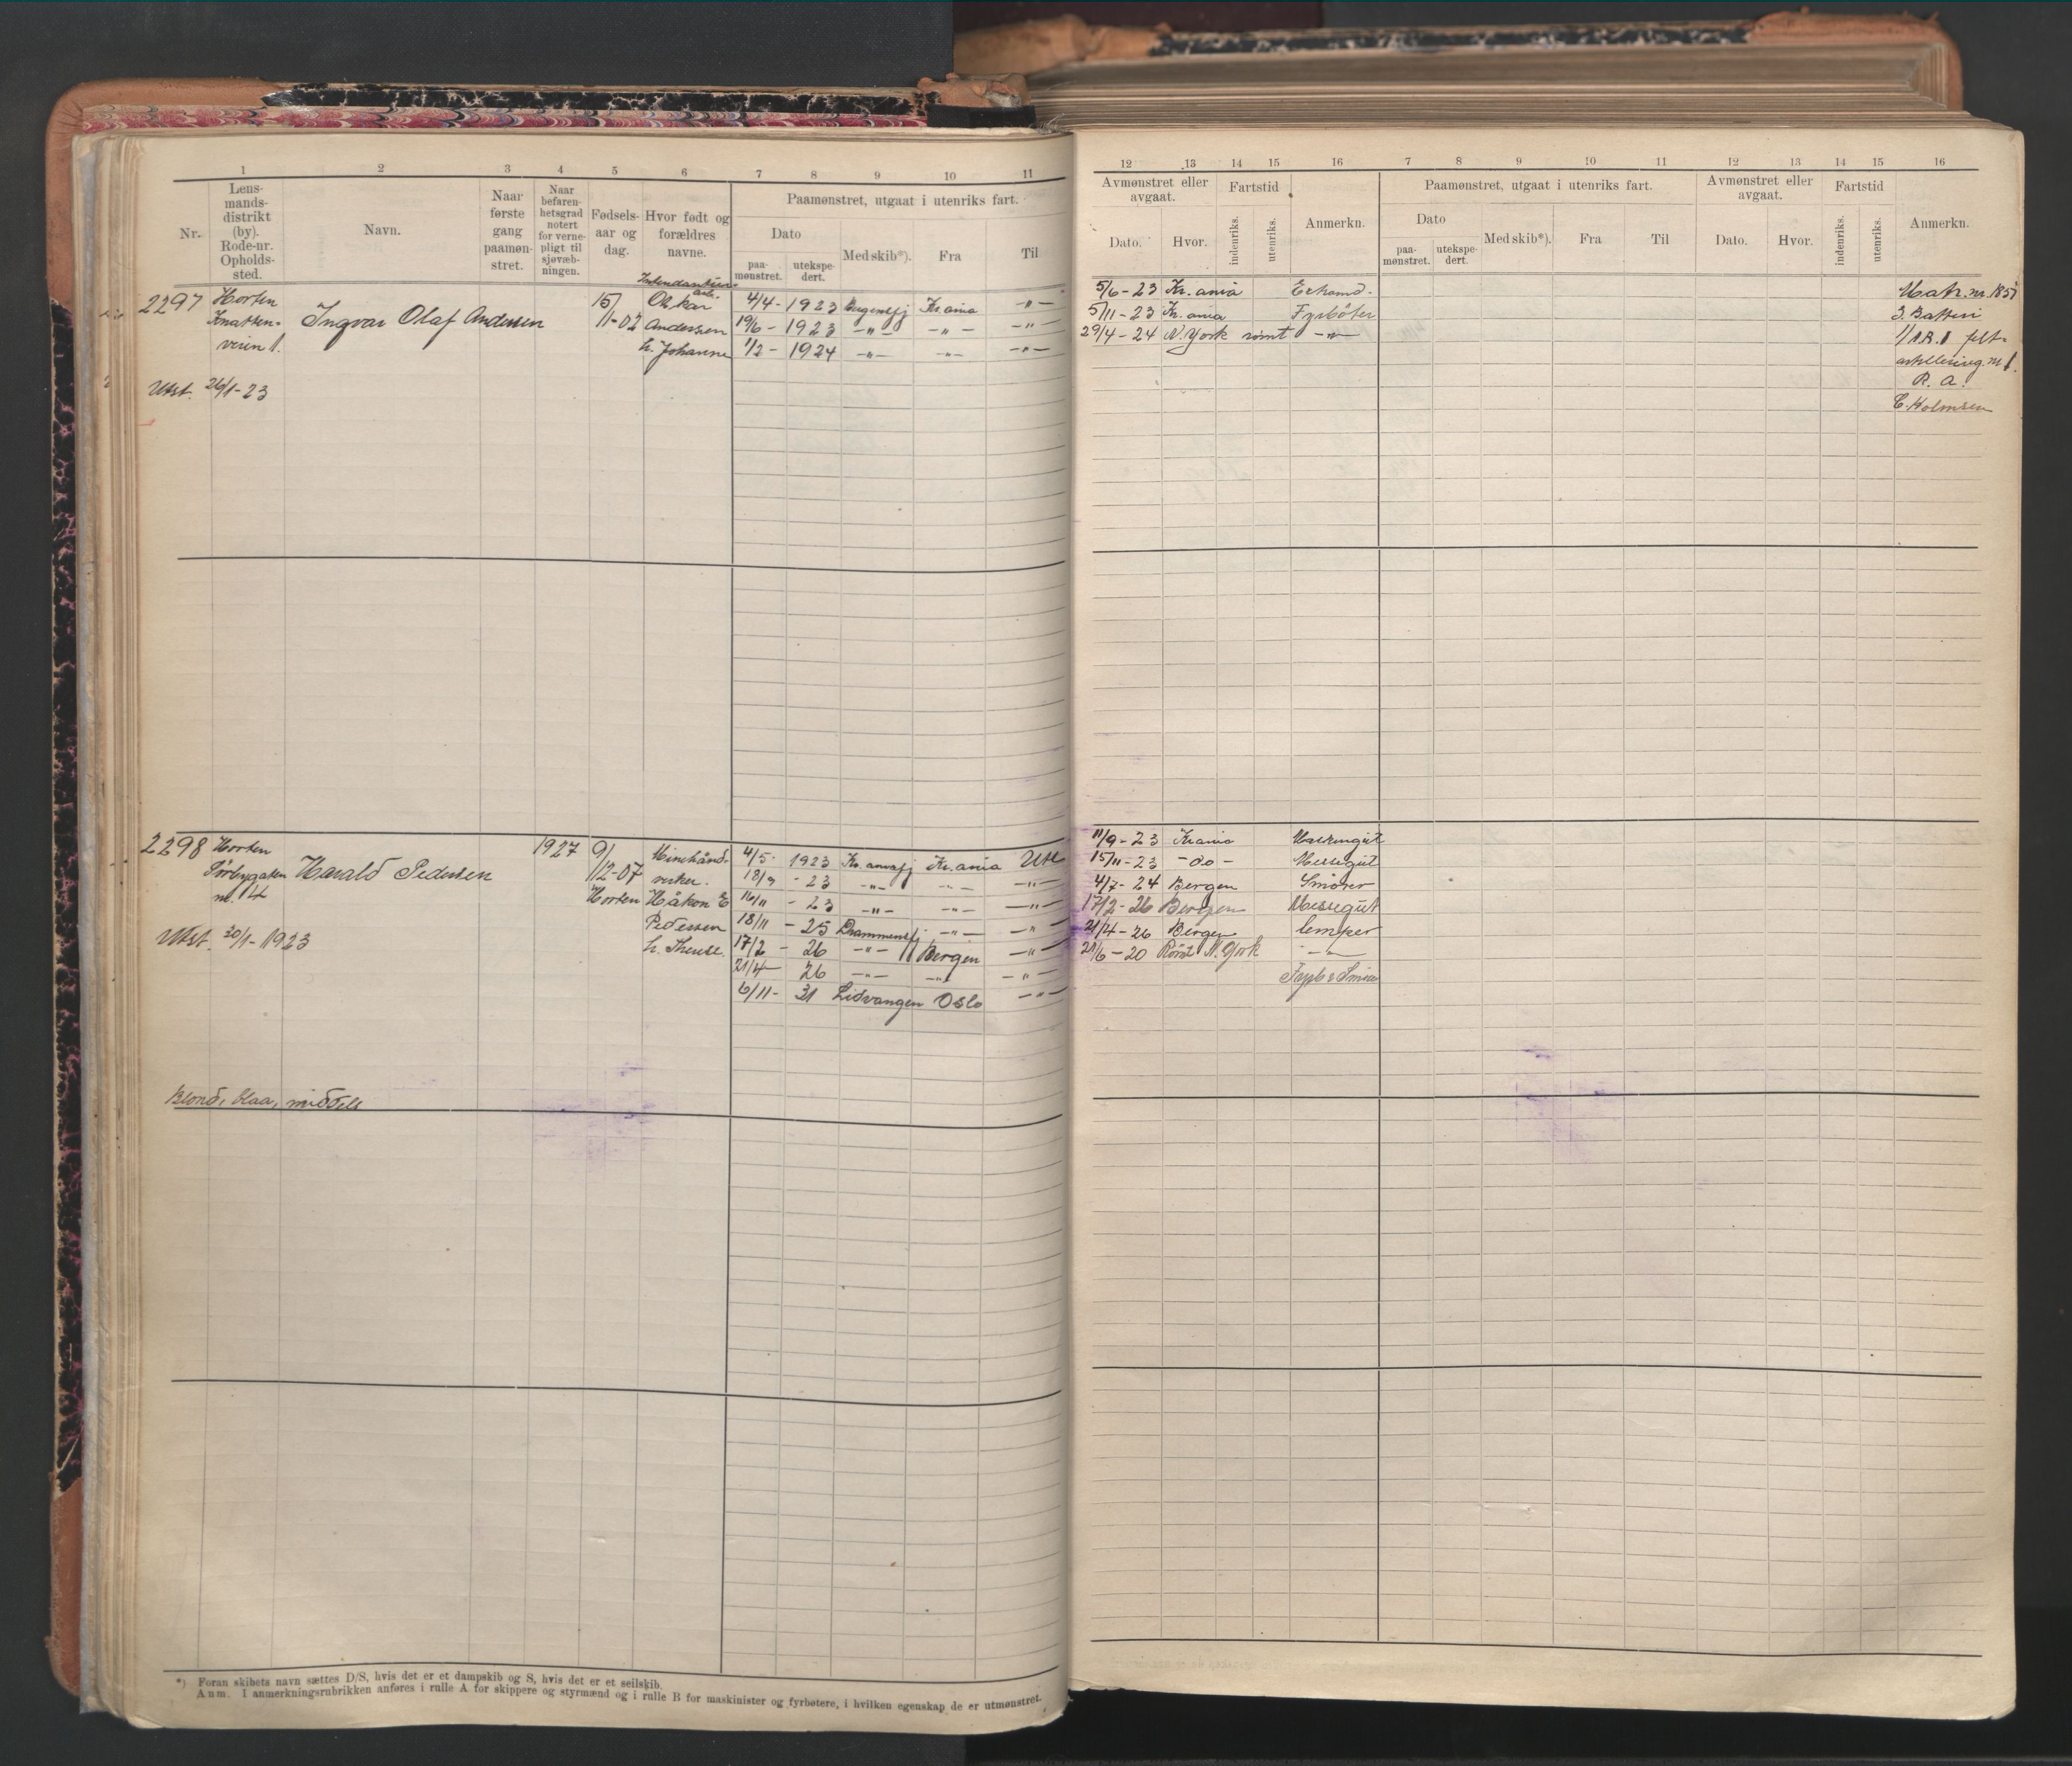 1 2 3 4 5 6 7 8 9 10 11
Nr. Lensmandsdistrikt (by). Rode-nr. Opholdssted. Navn. Naar første gang paamønstret. Naar befarenhetsgrad notert for vernepligt til sjøvæbningen. Fødselsaar og dag. Hvor født og forældres navne. Paamønstret, utgaat i utenriks fart.
Dato paamønstret. utekspedert. Med skib*). Fra Til
2297 Horten Ingvar Olaf Andersen 15/ Oskar 4/4 - 1923 Kr.ania -"-
1-02 Andersen 19/6 - 1923 -"- -"- -"-
veien 1. h. Johanne 1/2 - 1924 -"- -"- -"-
Utst. 26/1-23
2298 Horten Harald Pedersen 1927 9/ 4/5 - 1923 Kr.aniafj Kr.ania Utl
12-07 18/9 - 23 -"- -"- -"-
Horten Håkon E 16/11 - 23 -"- -"- -"-
Pedersen 18/11 - 25 Drammensfj -"- -"-
Utst. 30/1-1923 h. Therese. 17/2 - 26 -"- Bergen -"-
21/4 - 26 -"- -"- -"-
6/11 - 31 Lidvangen Oslo -"-
Blond, blaa, middels
*) Foran skibets navn sættes D/S, hvis det er et dampskib og S, hvis det er et seilskib.
Anm. I anmerkningsrubrikken anføres i rulle A for skippere og styrmænd og i rulle B for maskinister og fyrbøtere, i hvilken egenskap de er utmønstret.
12 13 14 15 16 7 8 9 10 11 12 13 14 15 16
Avmønstret eller avgaat. Fartstid Anmerkn. Paamønstret, utgaat i utenriks fart. Avmønstret eller avgaat. Fartstid Anmerkn.
Dato. Hvor. indenriks. utenriks. Dato paamønstret. utekspedert. Med skib*). Fra Til Dato. Hvor. indenriks. utenriks.
5/6 - 23 Kr.ania
5/11 - 23 Kr.ania Fyrböter 3. Batteri
29/4 - 24 N.York römt -"- felt-
artillerireg. nr 1.
R. A.
C. Holmsen
11/9 - 23 Kr.ania
15/11 - 23 -do- Messegut
4/7 - 24 Bergen Smörer
17/2 - 26 Bergen Messegut
21/4 - 26 Bergen lemper
21/6 - 20 Römt N.York -"-